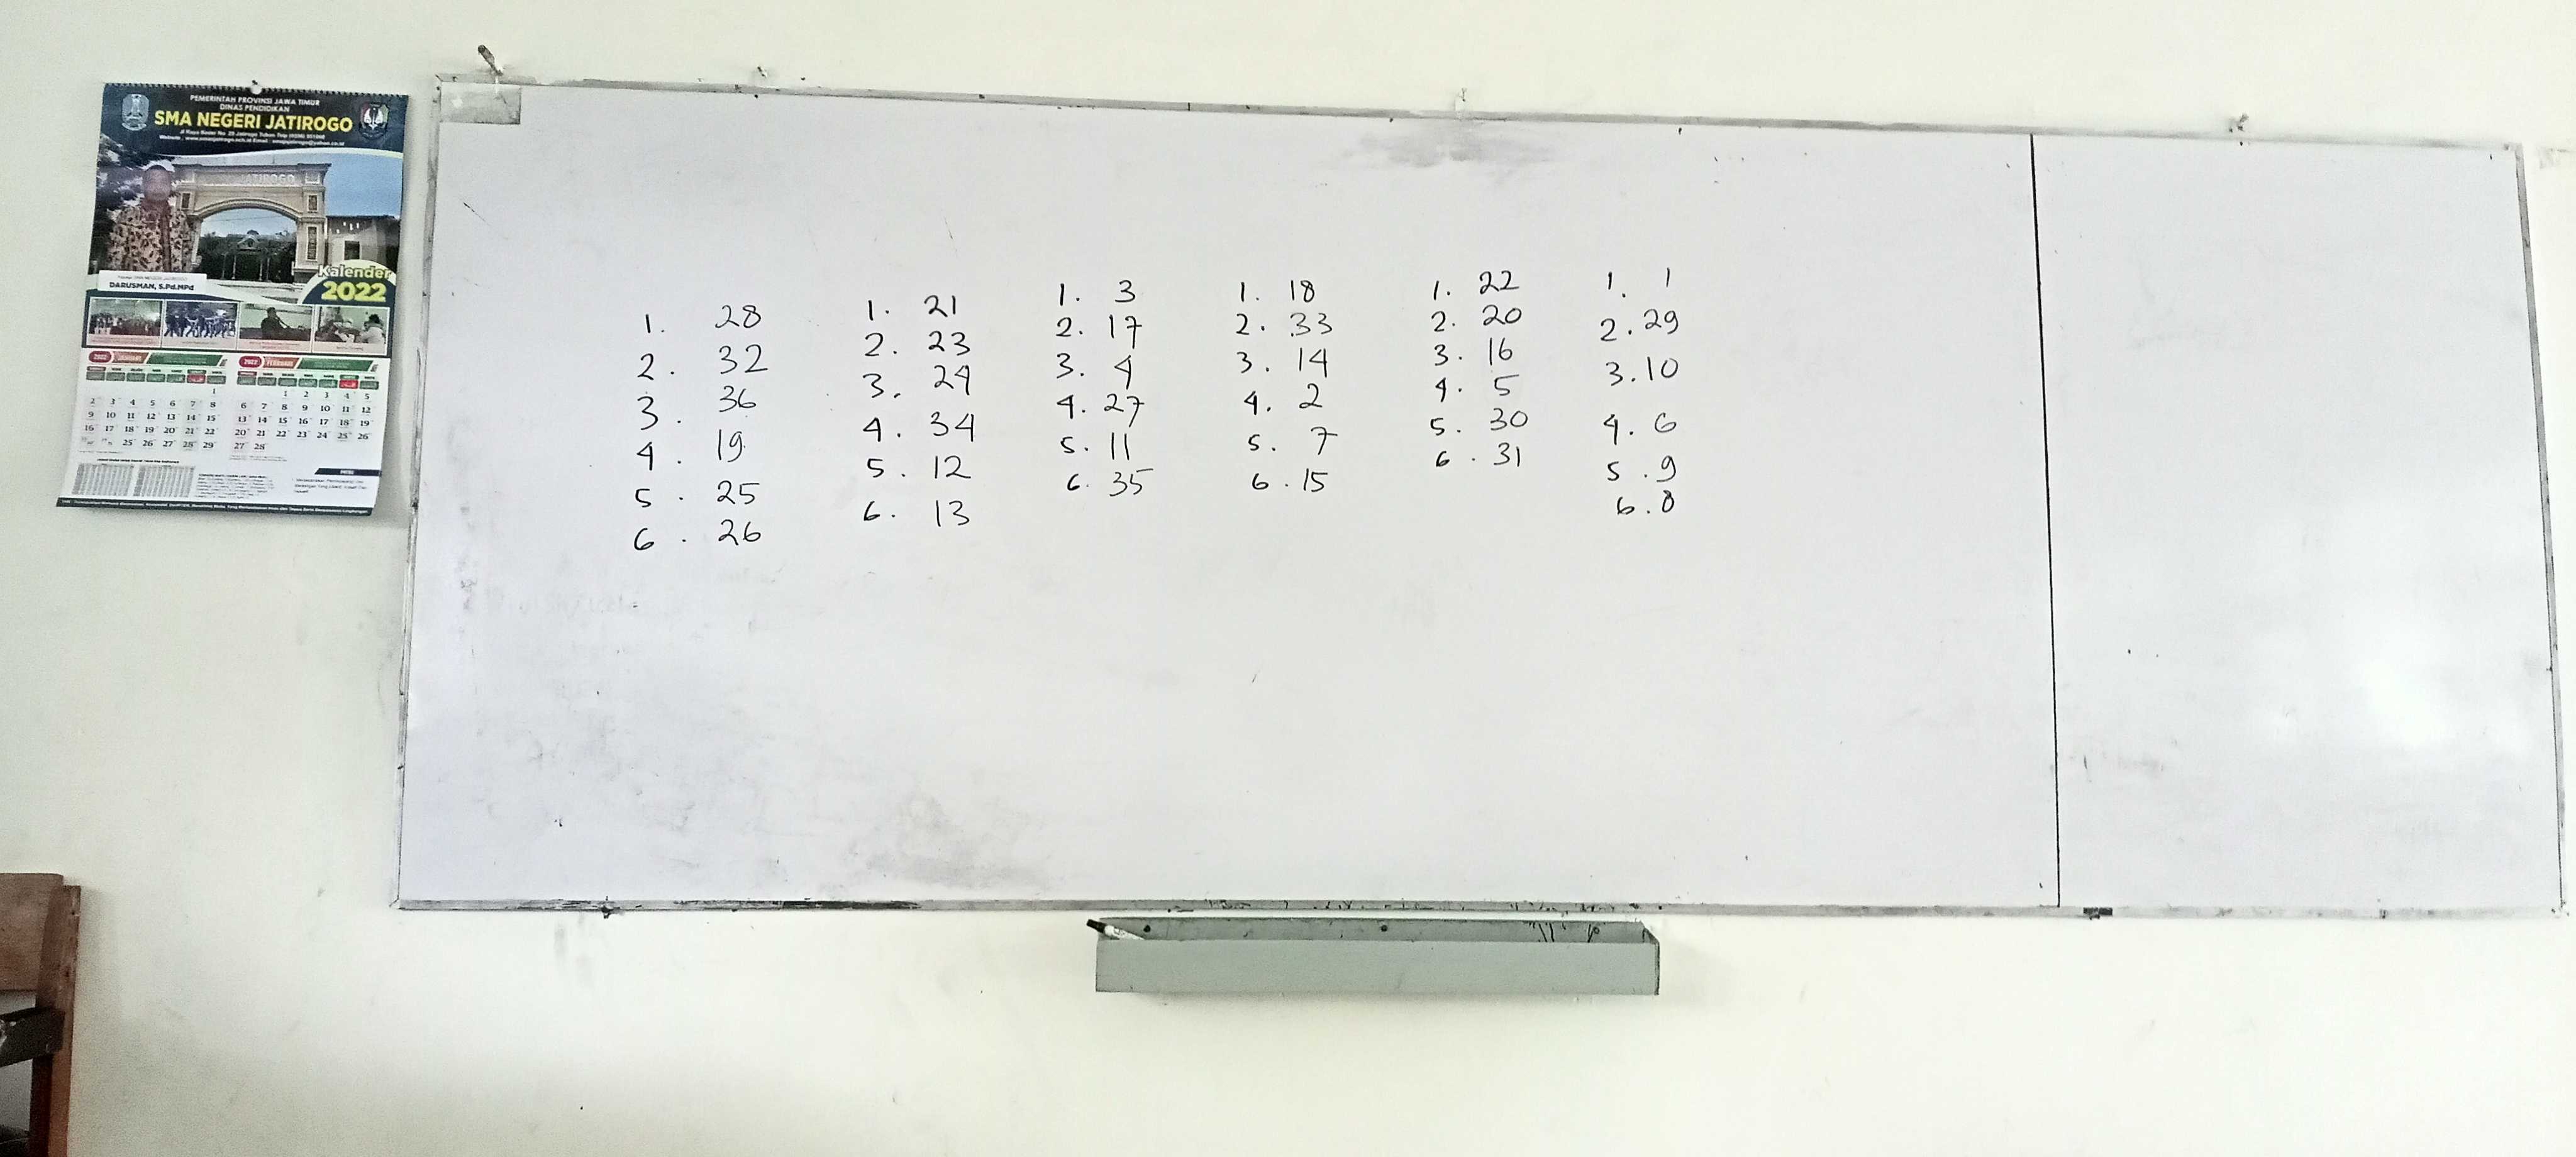 PEMERINTAH PROVINSI JAWA TIMUR
DINAS PENDIDIKAN
SMA NEGERI JATIROGO
JATIROGO
DARUSMAN, S.Pd.MPd
Kalender
2022
2022 JANUARI
1
2 3 4 5 6 7 8
9 10 11 12 13 14 15
16 17 18 19 20 21 22
25 26 27 28 29
2022 FEBRUARI
1 2 3 4 5
6 7 8 9 10 11 12
13 14 15 16 17 18 19
20 21 22 23 24 25 26
27 28
1. 28
2. 32
3. 36
4. 19
5. 25
6. 26
1. 21
2. 23
3. 24
4. 34
5. 12
6. 13
1. 3
2. 17
3. 4
4. 27
5. 11
6. 35
1. 18
2. 33
3. 14
4. 2
5. 7
6. 15
1. 22
2. 20
3. 16
4. 5
5. 30
6. 31
1. 1
2. 29
3. 10
4. 6
5. 9
6. 8